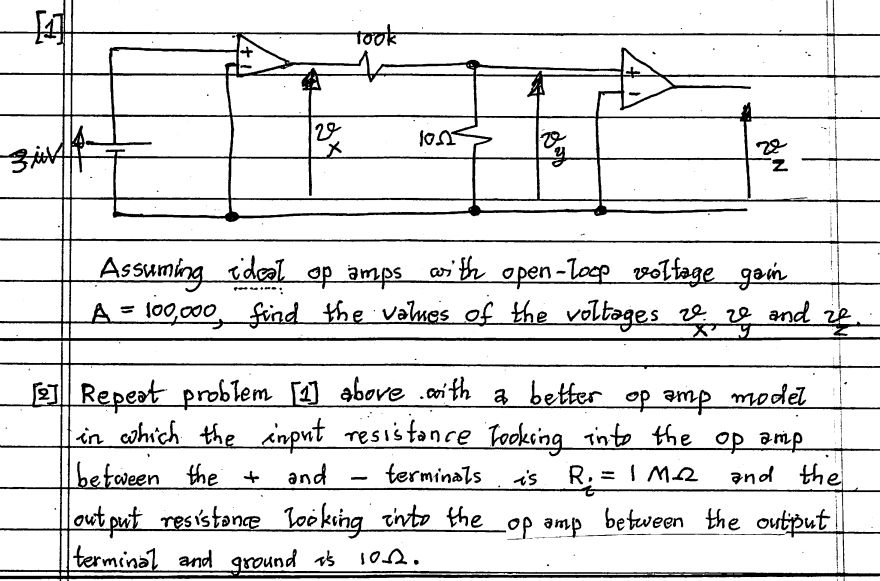 [1]
100k
+
−
+
−
3 µV
v_x
10Ω
v_y
v_z
Assuming ideal op amps with open-loop voltage gain
A = 100,000, find the values of the voltages v_x, v_y and v_z.
[2] Repeat problem [1] above with a better op amp model
in which the input resistance looking into the op amp
between the + and − terminals is R_i = 1 MΩ and the
output resistance looking into the op amp between the output
terminal and ground is 10Ω.